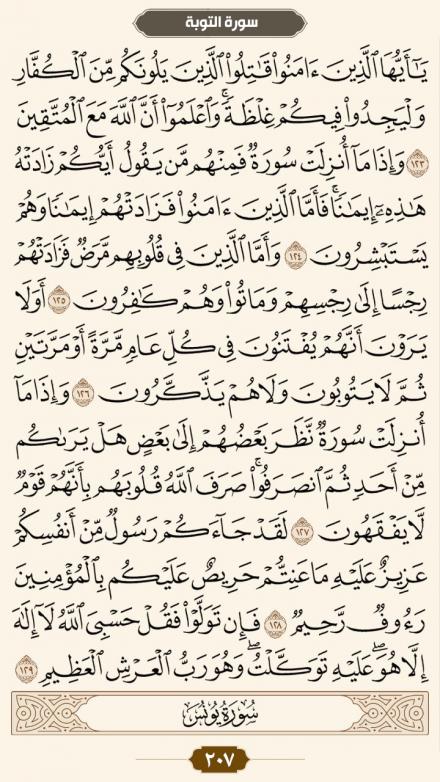 سورة التوبة
يَـٰٓأَيُّهَا ٱلَّذِينَ ءَامَنُوا۟ قَـٰتِلُوا۟ ٱلَّذِينَ يَلُونَكُم مِّنَ ٱلْكُفَّارِ
وَلْيَجِدُوا۟ فِيكُمْ غِلْظَةً ۚ وَٱعْلَمُوٓا۟ أَنَّ ٱللَّهَ مَعَ ٱلْمُتَّقِينَ
١٢٣ وَإِذَا مَآ أُنزِلَتْ سُورَةٌ فَمِنْهُم مَّن يَقُولُ أَيُّكُمْ زَادَتْهُ
هَـٰذِهِۦٓ إِيمَـٰنًا ۚ فَأَمَّا ٱلَّذِينَ ءَامَنُوا۟ فَزَادَتْهُمْ إِيمَـٰنًا وَهُمْ
يَسْتَبْشِرُونَ ١٢٤ وَأَمَّا ٱلَّذِينَ فِى قُلُوبِهِم مَّرَضٌ فَزَادَتْهُمْ
رِجْسًا إِلَىٰ رِجْسِهِمْ وَمَاتُوا۟ وَهُمْ كَـٰفِرُونَ ١٢٥ أَوَلَا
يَرَوْنَ أَنَّهُمْ يُفْتَنُونَ فِى كُلِّ عَامٍ مَّرَّةً أَوْ مَرَّتَيْنِ
ثُمَّ لَا يَتُوبُونَ وَلَا هُمْ يَذَّكَّرُونَ ١٢٦ وَإِذَا مَآ
أُنزِلَتْ سُورَةٌ نَّظَرَ بَعْضُهُمْ إِلَىٰ بَعْضٍ هَلْ يَرَىٰكُم
مِّنْ أَحَدٍ ثُمَّ ٱنصَرَفُوا۟ ۚ صَرَفَ ٱللَّهُ قُلُوبَهُم بِأَنَّهُمْ قَوْمٌ
لَّا يَفْقَهُونَ ١٢٧ لَقَدْ جَآءَكُمْ رَسُولٌ مِّنْ أَنفُسِكُمْ
عَزِيزٌ عَلَيْهِ مَا عَنِتُّمْ حَرِيصٌ عَلَيْكُم بِٱلْمُؤْمِنِينَ
رَءُوفٌ رَّحِيمٌ ١٢٨ فَإِن تَوَلَّوْا۟ فَقُلْ حَسْبِىَ ٱللَّهُ لَآ إِلَـٰهَ
إِلَّا هُوَ ۖ عَلَيْهِ تَوَكَّلْتُ ۖ وَهُوَ رَبُّ ٱلْعَرْشِ ٱلْعَظِيمِ ١٢٩
سُورَةُ يُونُسَ
٢٠٧